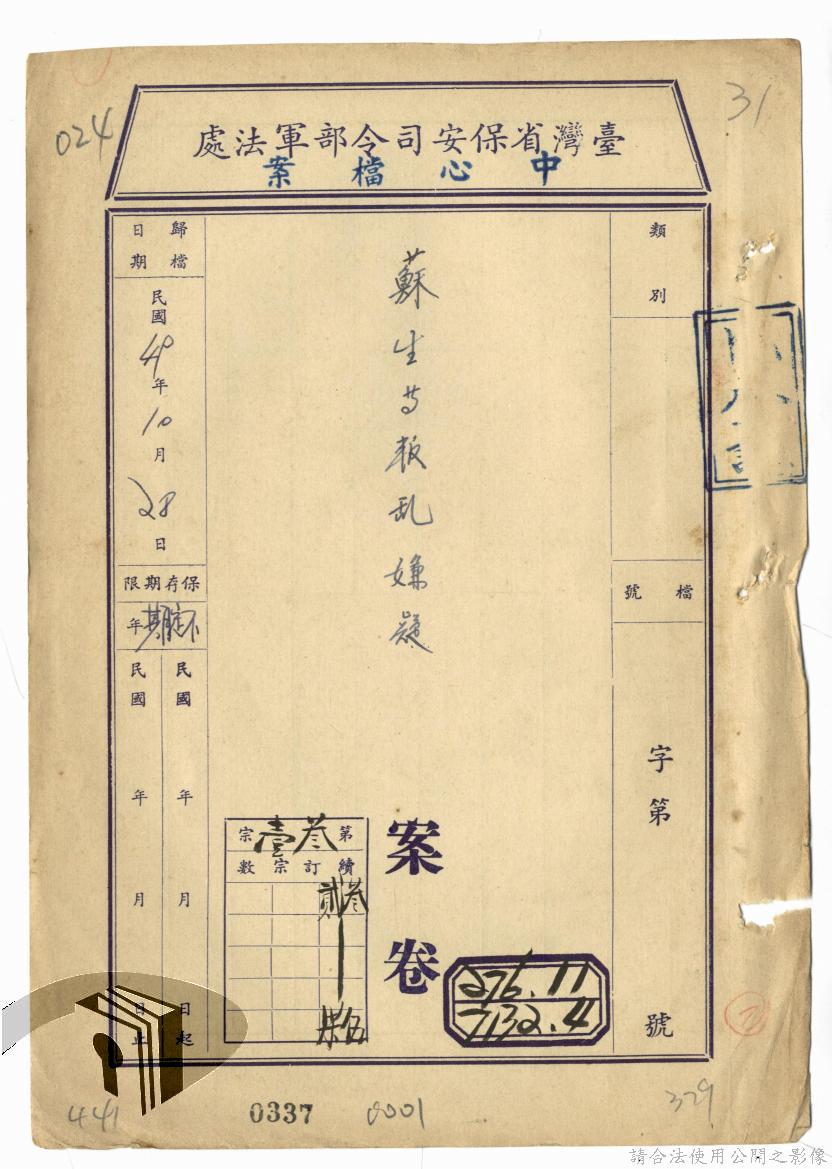 024
31
臺灣省保安司令部軍法處
中心檔案
類別
檔號
字第
號
蘇生等叛乱嫌疑
案卷
276.11
7132.4
第叁壹宗
續訂宗數
叁貳
伍
歸檔日期
民國40年10月28日
保存期限
不定期年
民國 年 月 日起
民國 年 月 日止
441
0337
0001
329
請合法使用公開之影像